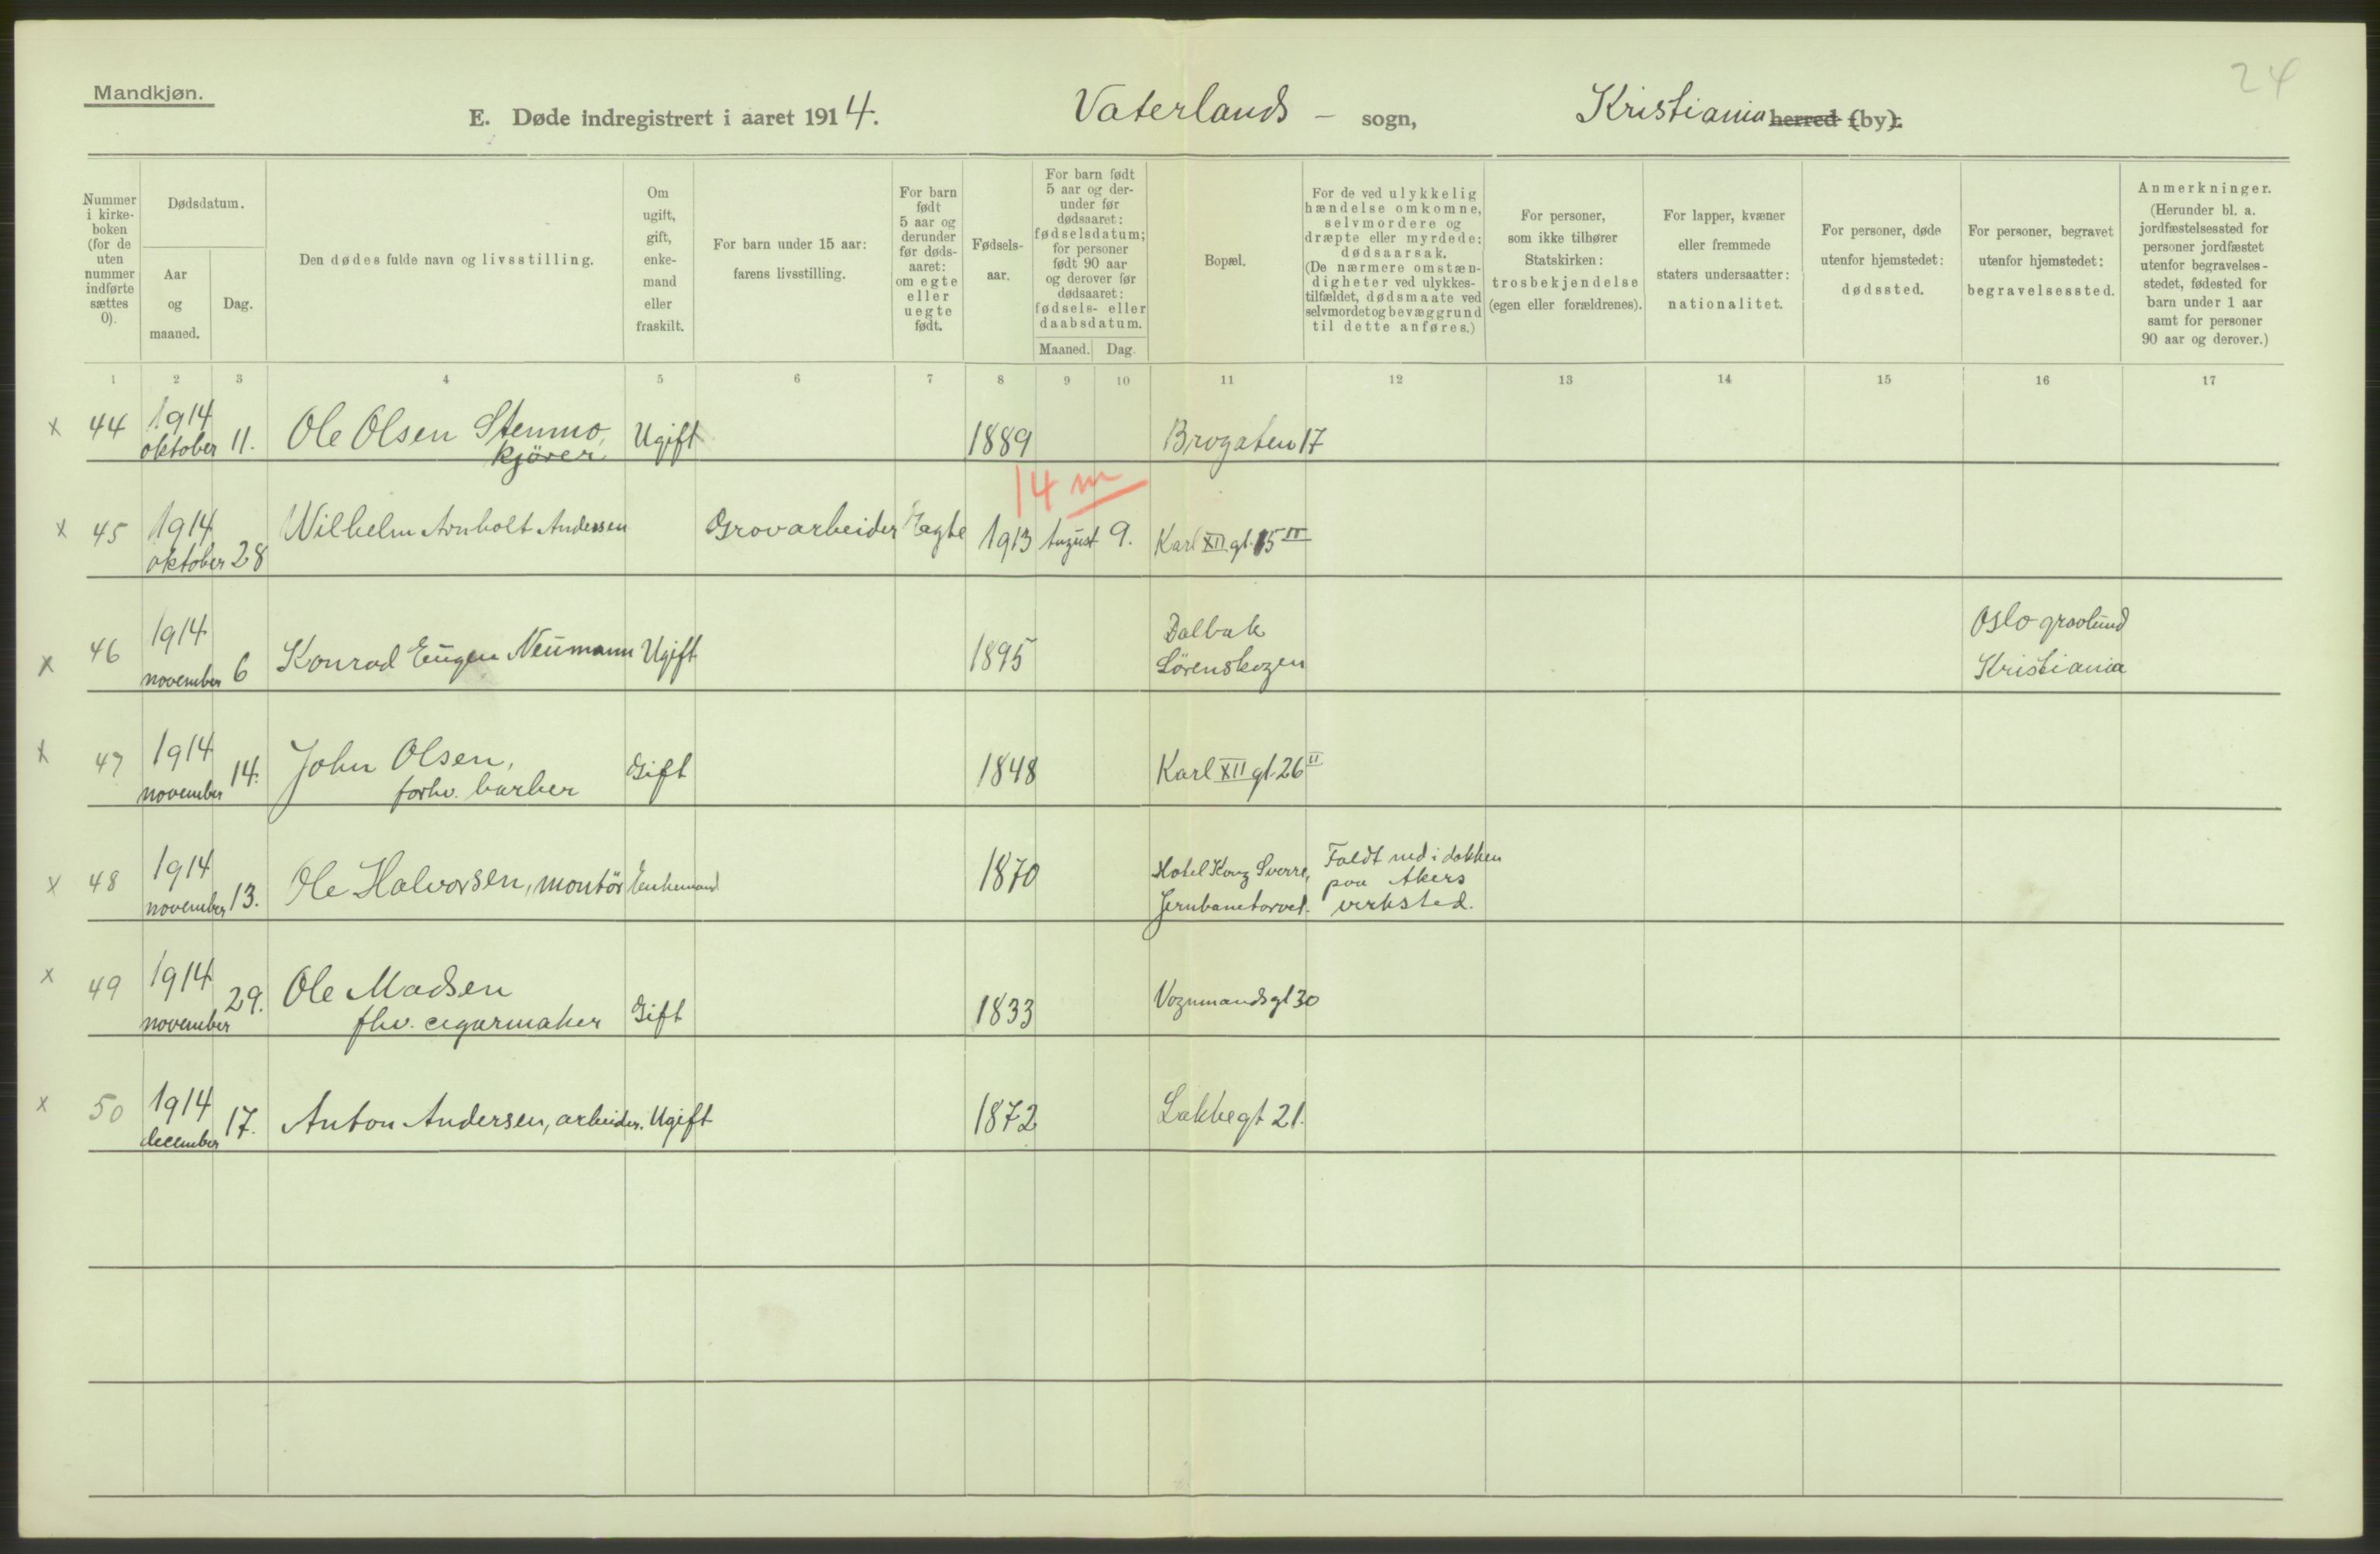 24
Mandkjøn.
E. Døde indregistrert i aaret 1914. Vaterlands – sogn, Kristiania herred (by).
Nummer i kirkeboken (for de uten nummer indførte sættes 0).
Dødsdatum.
Aar og maaned.
Dag.
Den dødes fulde navn og livsstilling.
Om ugift, gift, enkemand eller fraskilt.
For barn under 15 aar: farens livsstilling.
For barn født 5 aar og derunder før dødsaaret: om egte eller uegte født.
Fødselsaar.
For barn født 5 aar og derunder før dødsaaret: fødselsdatum; for personer født 90 aar og derover før dødsaaret: fødsels- eller daabsdatum.
Maaned. Dag.
Bopæl.
For de ved ulykkelig hændelse omkomne, selvmordere og dræpte eller myrdede: dødsaarsak. (De nærmere omstændigheter ved ulykkestilfældet, dødsmaate ved selvmordet og bevæggrund til dette anføres.)
For personer, som ikke tilhører Statskirken: trosbekjendelse (egen eller forældrenes).
For lapper, kvæner eller fremmede staters undersaatter: nationalitet.
For personer, døde utenfor hjemstedet: dødssted.
For personer, begravet utenfor hjemstedet: begravelsessted.
Anmerkninger. (Herunder bl. a. jordfæstelsessted for personer jordfæstet utenfor begravelsesstedet, fødested for barn under 1 aar samt for personer 90 aar og derover.)
1 2 3 4 5 6 7 8 9 10 11 12 13 14 15 16 17
x 44 1914 oktober 11. Ole Olsen Stenmo, kjører. Ugift 1889 Brogaten 17
14 m
x 45 1914 oktober 28 Wilhelm Arnholt Andersen Grovarbeider Ægte 1913 August 9. Karl XII gt. 15 II
x 46 1914 november 6 Konrad Eugen Neumann Ugift 1895 Dalbak Lörenskogen Oslo gravlund Kristiania
x 47 1914 november 14. John Olsen, forhv. barber Gift 1848 Karl XII gt. 26 II
x 48 1914 november 13. Ole Halvorsen, montör Enkemand 1870 Hotel Kong Sverre, Jernbanetorvet. Faldt ned i dokken paa Akers verksted.
x 49 1914 november 29. Ole Madsen fhv. cigarmaker Gift 1833 Vognmandsgt 30
x 50 1914 december 17. Anton Andersen, arbeider. Ugift 1872 Lakkegt 21.